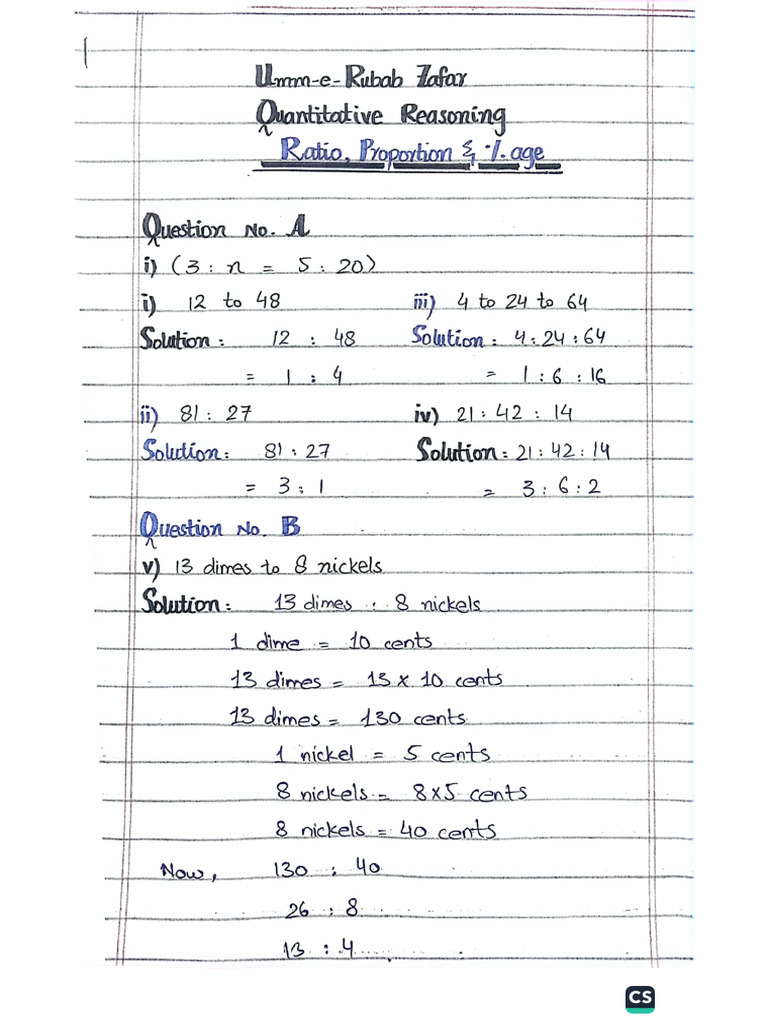 1
Umm-e-Rubab Zafar
Quantitative Reasoning
Ratio, Proportion & %age
Question No. A
i) (3 : n = 5 : 20)
i) 12 to 48 iii) 4 to 24 to 64
Solution: 12 : 48 Solution: 4:24:64
= 1 : 4 = 1 : 6 : 16
ii) 81 : 27 iv) 21 : 42 : 14
Solution: 81 : 27 Solution: 21 : 42 : 14
= 3 : 1 = 3 : 6 : 2
Question No. B
v) 13 dimes to 8 nickels
Solution: 13 dimes : 8 nickels
1 dime = 10 cents
13 dimes = 13 x 10 cents
13 dimes = 130 cents
1 nickel = 5 cents
8 nickels = 8x5 cents
8 nickels = 40 cents
Now, 130 : 40
26 : 8
13 : 4
CS